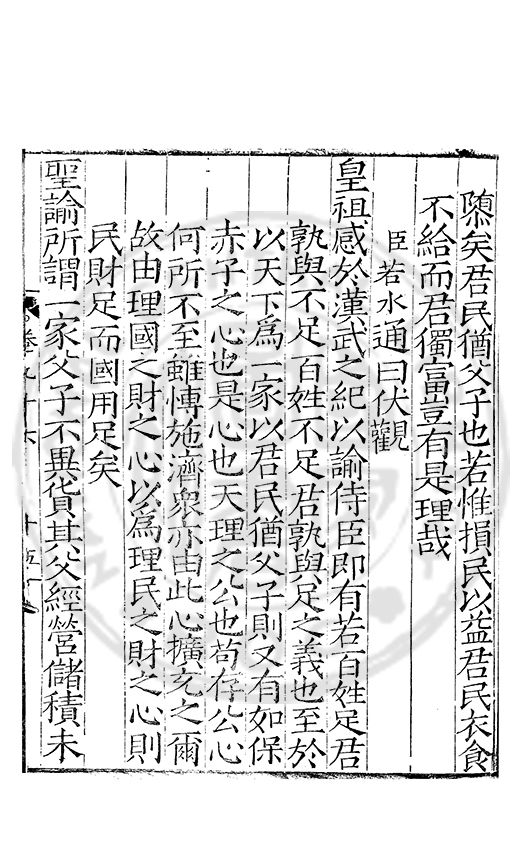 隳矣君民猶父子也若惟損民以益君民衣食
不給而君獨富豈有是理哉
臣若水通曰伏觀
皇祖感於漢武之紀以諭侍臣即有若百姓足君
孰與不足百姓不足君孰與足之義也至於
以天下爲一家以君民猶父子則又有如保
赤子之心也是心也天理之公也苟存公心
何所不至雖愽施濟衆亦由此心擴充之爾
故由理國之財之心以爲理民之財之心則
民財足而國用足矣
聖諭所謂一家父子不異貨其父經營儲積未
卷九十六
十五